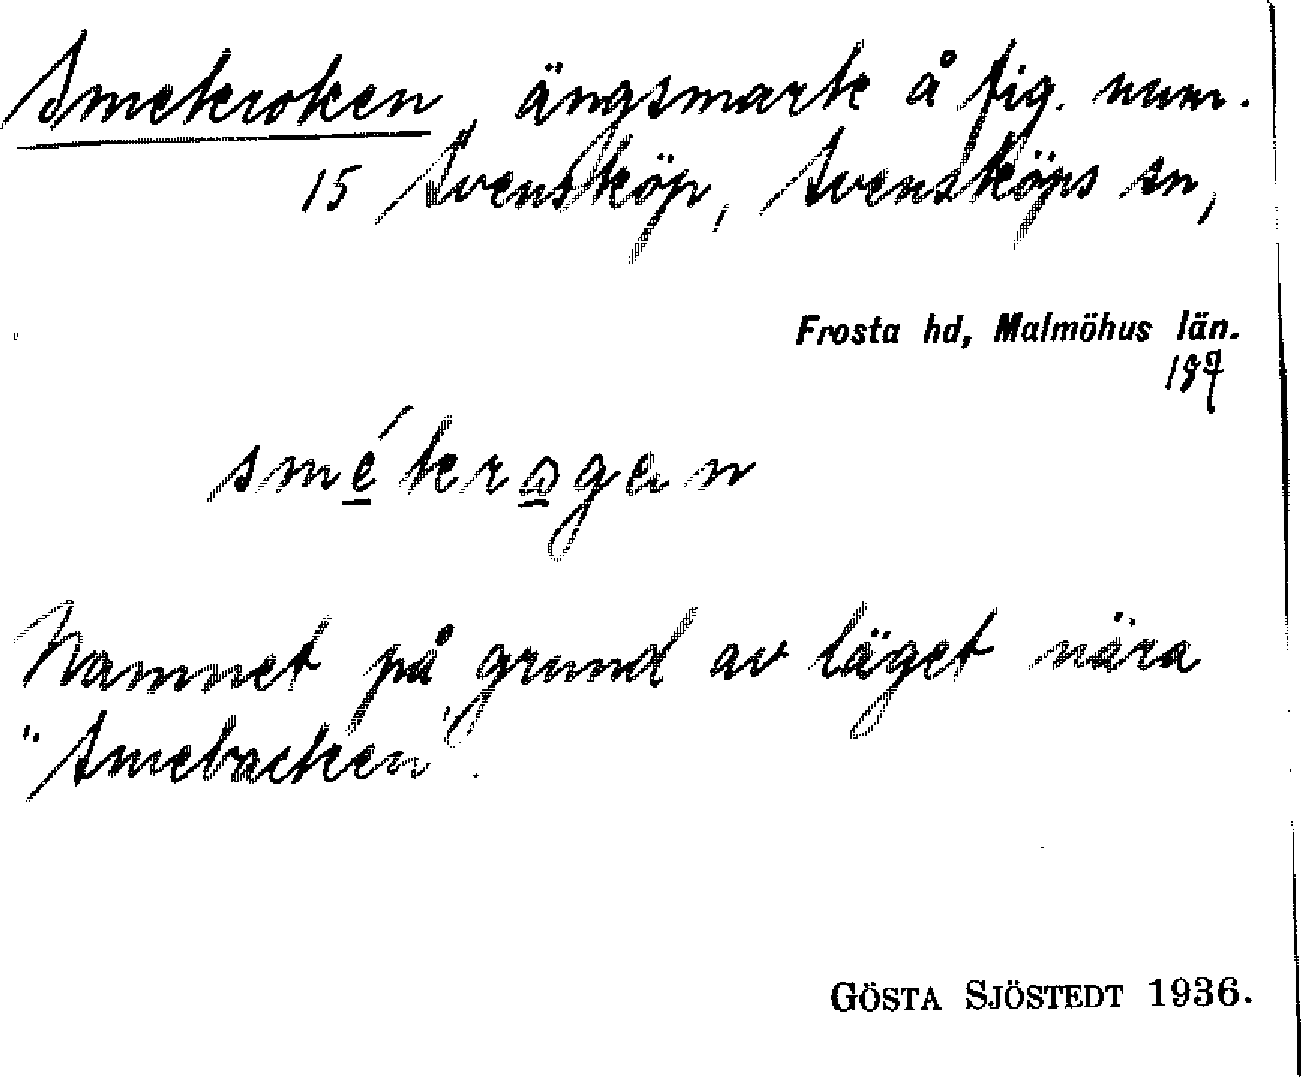 Smekroken, ängsmark å fig. num.
15 Svensköp, Svensköps sn,
Frosta hd, Malmöhus län.
smékrogen
Namnet på grund av läget nära
"Smebacken".
GÖSTA SJÖSTEDT 1936.